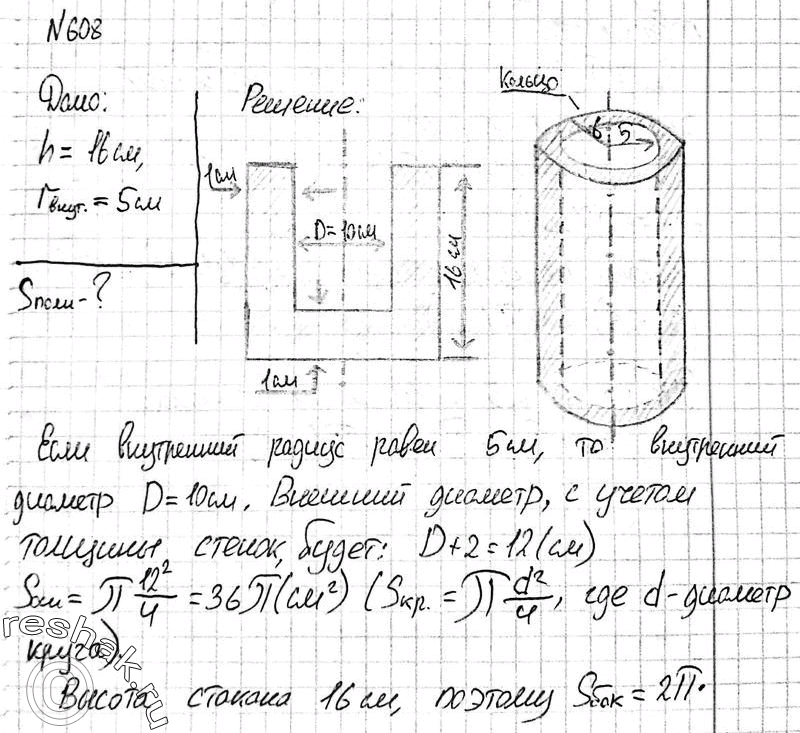 N608
Дано:
h = 16 см,
rвнут. = 5 см
Sполн - ?
Решение:
1 см
D = 10 см
16 см
1 см
Кольцо
6 5
Если внутренний радиус равен 5 см, то внутренний
диаметр D = 10 см. Внешний диаметр, с учетом
толщины стенок, будет: D + 2 = 12 (см)
= π 12²/4 = 36π (см²) (Sкр. = π d²/4, где d - диаметр
круга).
Высота стакана 16 см, поэтому Sбок = 2π·
reshak.ru